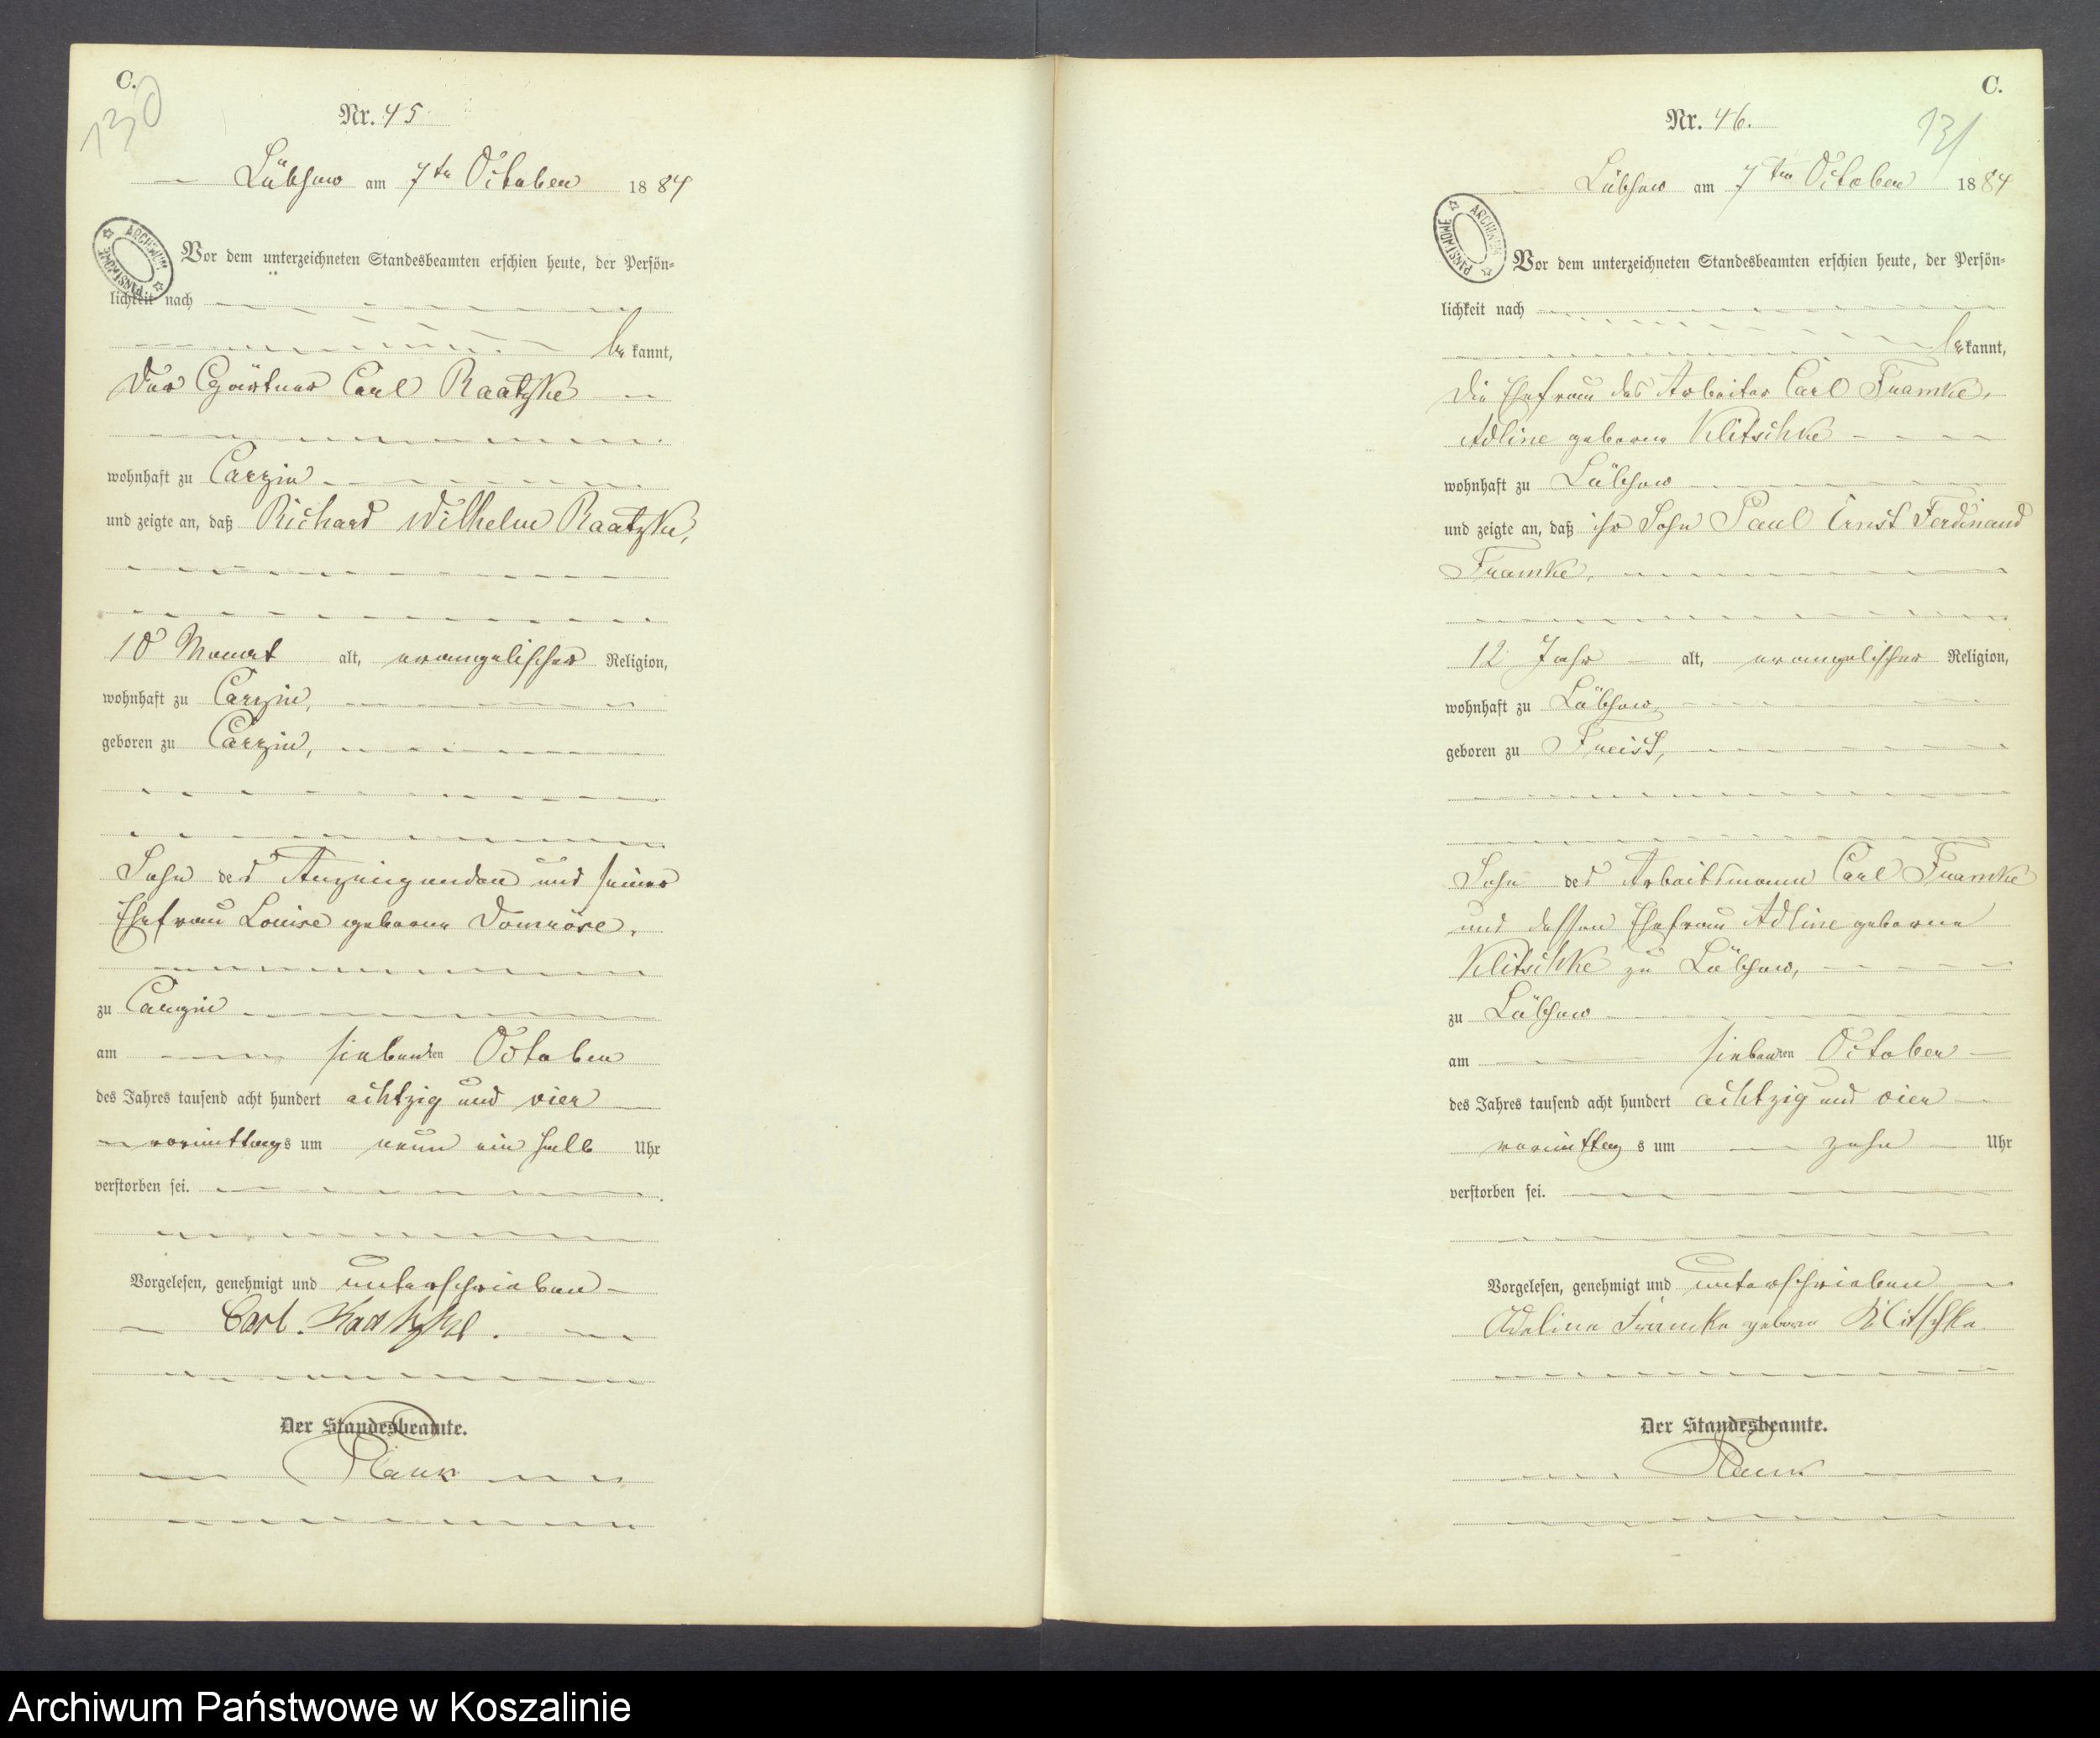 C.
130
Nr. 45
Lübzow am 7ten October 1884
ARCHIWUM PAŃSTWOWE
Vor dem unterzeichneten Standesbeamten erschien heute, der Persön-
lichkeit nach
bekannt,
der Gärtner Carl Raatzke
wohnhaft zu Carzin
und zeigte an, daß Richard Wilhelm Raatzke,
10 Monat alt, evangelischer Religion,
wohnhaft zu Carzin,
geboren zu Carzin,
Sohn des Anzeigenden und seiner
Ehefrau Louise geborne Domröse,
zu Carzin
am siebenten October
des Jahres tausend acht hundert achtzig und vier
vormittags um neun ein halb Uhr
verstorben sei.
Vorgelesen, genehmigt und unterschrieben
Carl. Raatzke.
Der Standesbeamte.
C.
131
Nr. 46.
Lübzow am 7ten October 1884
ARCHIWUM PAŃSTWOWE
Vor dem unterzeichneten Standesbeamten erschien heute, der Persön-
lichkeit nach
bekannt,
die Ehefrau des Arbeiter Carl Framke,
Adline geborne Klitschke
wohnhaft zu Lübzow
und zeigte an, daß ihr Sohn Paul Ernst Ferdinand
Framke,
12 Jahr alt, evangelischer Religion,
wohnhaft zu Lübzow,
geboren zu Freist,
Sohn des Arbeitsmann Carl Framke
und dessen Ehefrau Adline geborne
Klitschke zu Lübzow,
zu Lübzow
am siebenten October
des Jahres tausend acht hundert achtzig und vier
vormittags um zehn Uhr
verstorben sei.
Vorgelesen, genehmigt und unterschrieben
Adeline Framke geborne Klitschke
Der Standesbeamte.
Archiwum Państwowe w Koszalinie